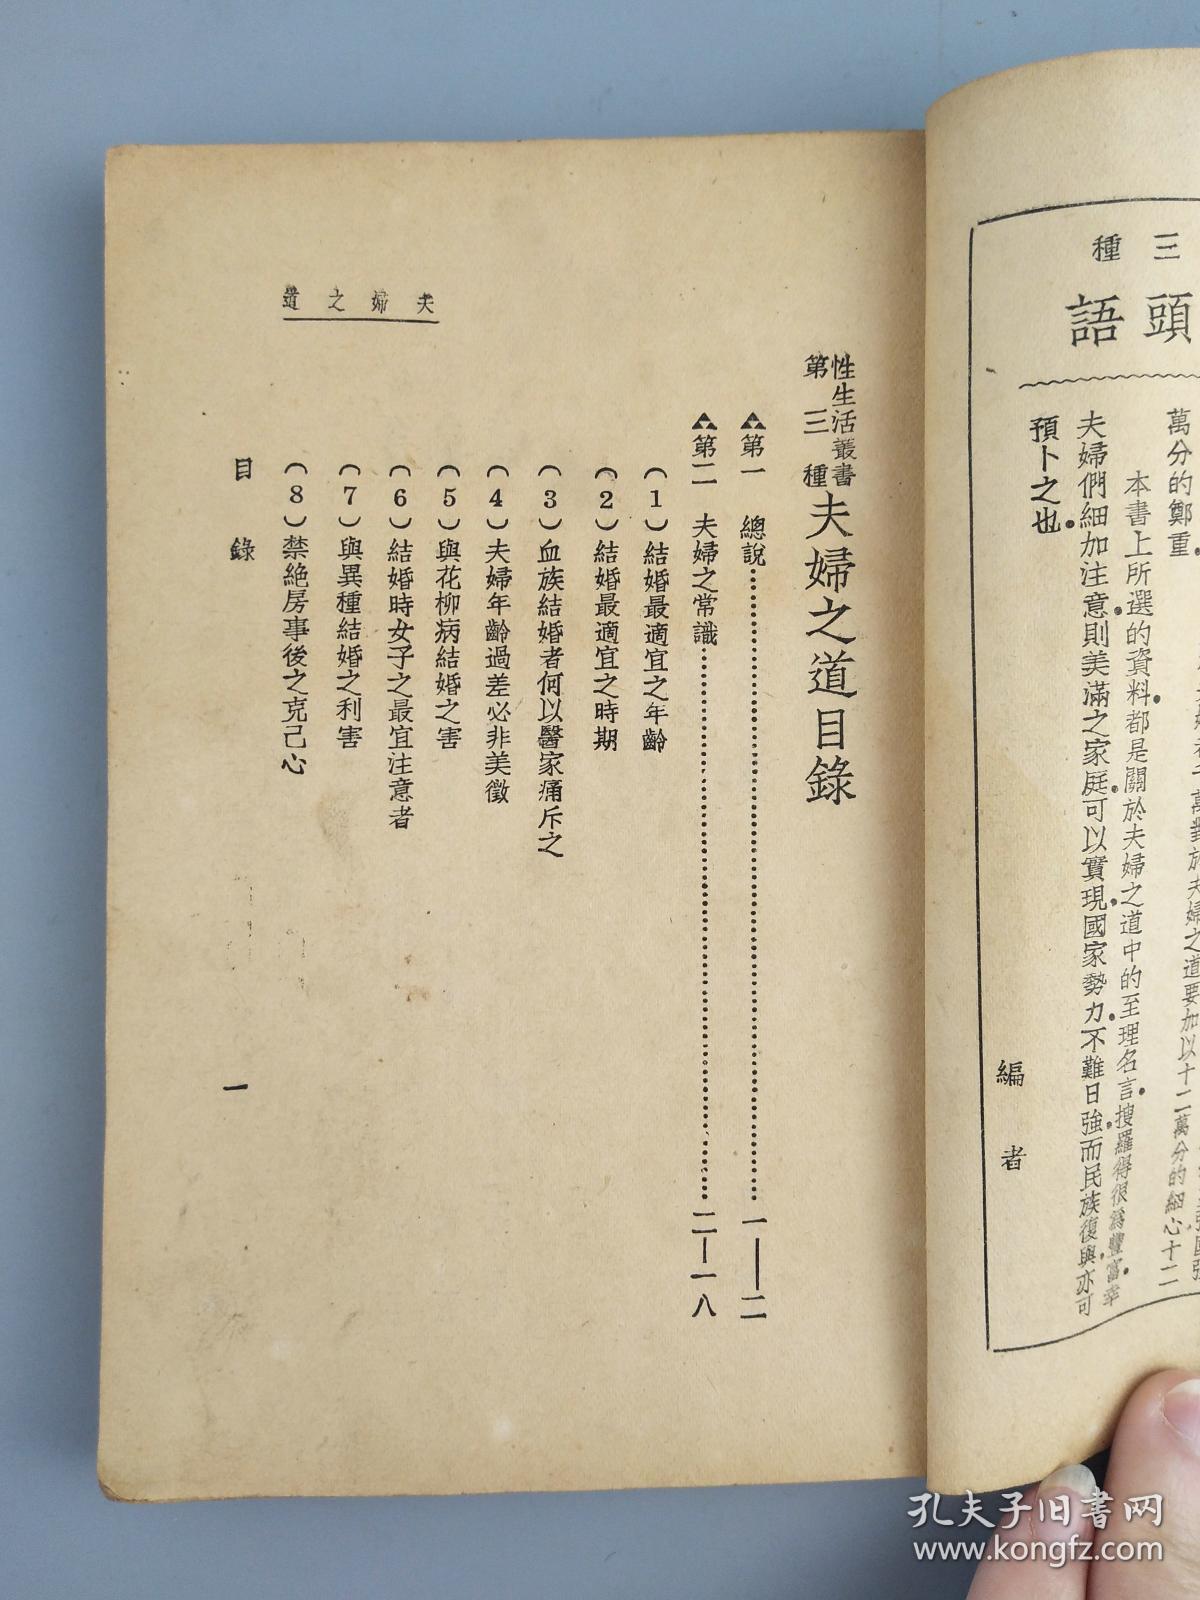 三種
頭語
萬分的鄭重。
本書上所選的資料。都是關於夫婦之道中的至理名言。搜羅得很爲豐富。幸
夫婦們細加注意。則美滿之家庭。可以實現。國家勢力。不難日強。而民族復興。亦可
預卜之也。
編者
性生活叢書
第三種
夫婦之道目錄
第一　總說……一——二
第二　夫婦之常識……二—一八
(1)結婚最適宜之年齡
(2)結婚最適宜之時期
(3)血族結婚者何以醫家痛斥之
(4)夫婦年齡過差必非美徵
(5)與花柳病結婚之害
(6)結婚時女子之最宜注意者
(7)與異種結婚之利害
(8)禁絶房事後之克己心
夫婦之道
目錄
一
孔夫子旧书网
www.kongfz.com